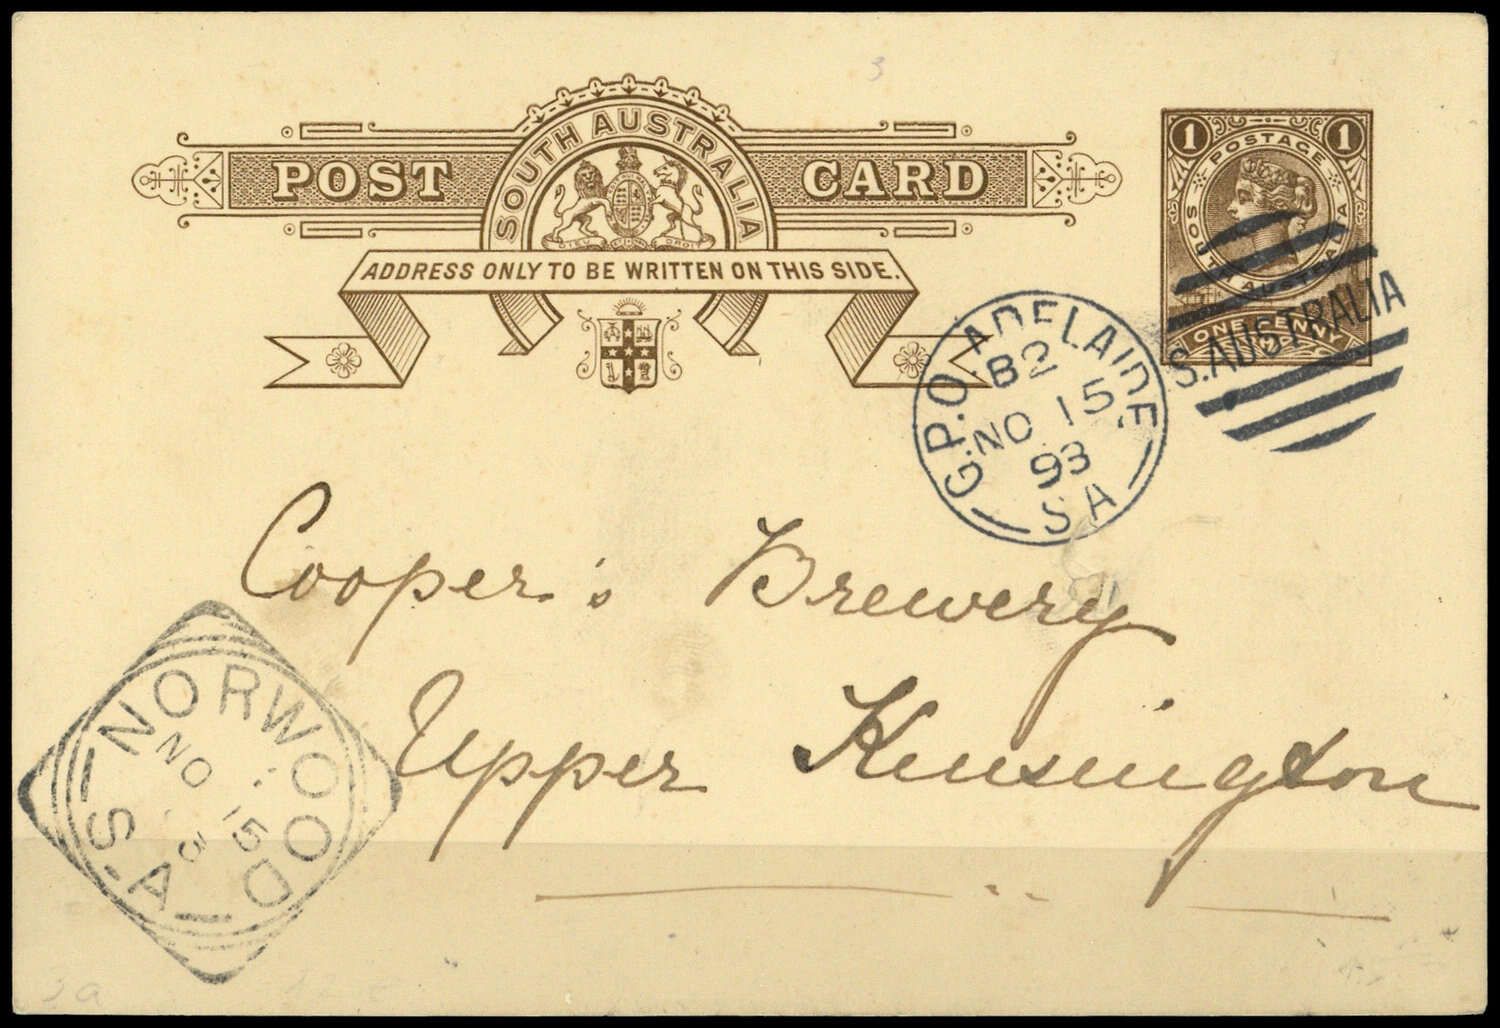 3
SOUTH AUSTRALIA
POST CARD
DIEU ET MON DROIT
ADDRESS ONLY TO BE WRITTEN ON THIS SIDE.
1 POSTAGE 1
SOUTH AUSTRALIA
ONE PENNY
S. AUSTRALIA
G.P.O. ADELAIDE
B2
NO 15
93
S A
Cooper's Brewery
Upper Kensington
NORWOOD
NO 15
3
S.A
3a